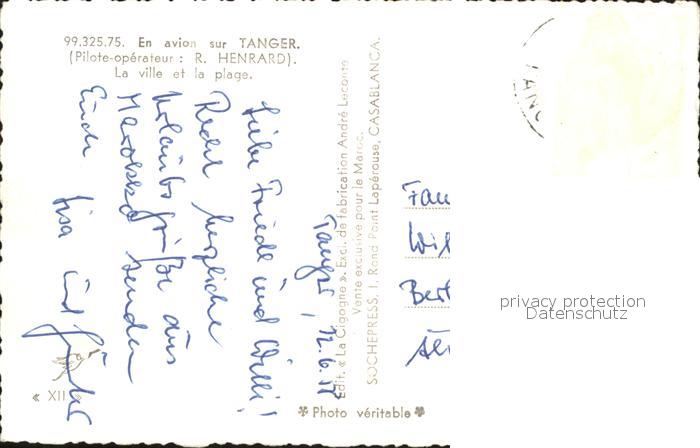 99.325.75. En avion sur TANGER.
(Pilote-opérateur : R. HENRARD).
La ville et la plage.
Tanger, 12.6.
Liebe Friedl und Willi!
Recht herzliche
Urlaubsgrüße aus
Marokko senden
Euch Lisa und Günter
Edit. « La Cigogne ». Excl. de fabrication André Leconte
Vente exclusive pour le Maroc.
SOCHEPRESS, 1, Rond Point Lapérouse, CASABLANCA.
Fam
Wil
Bert
« XII »
Photo véritable
privacy protection
Datenschutz